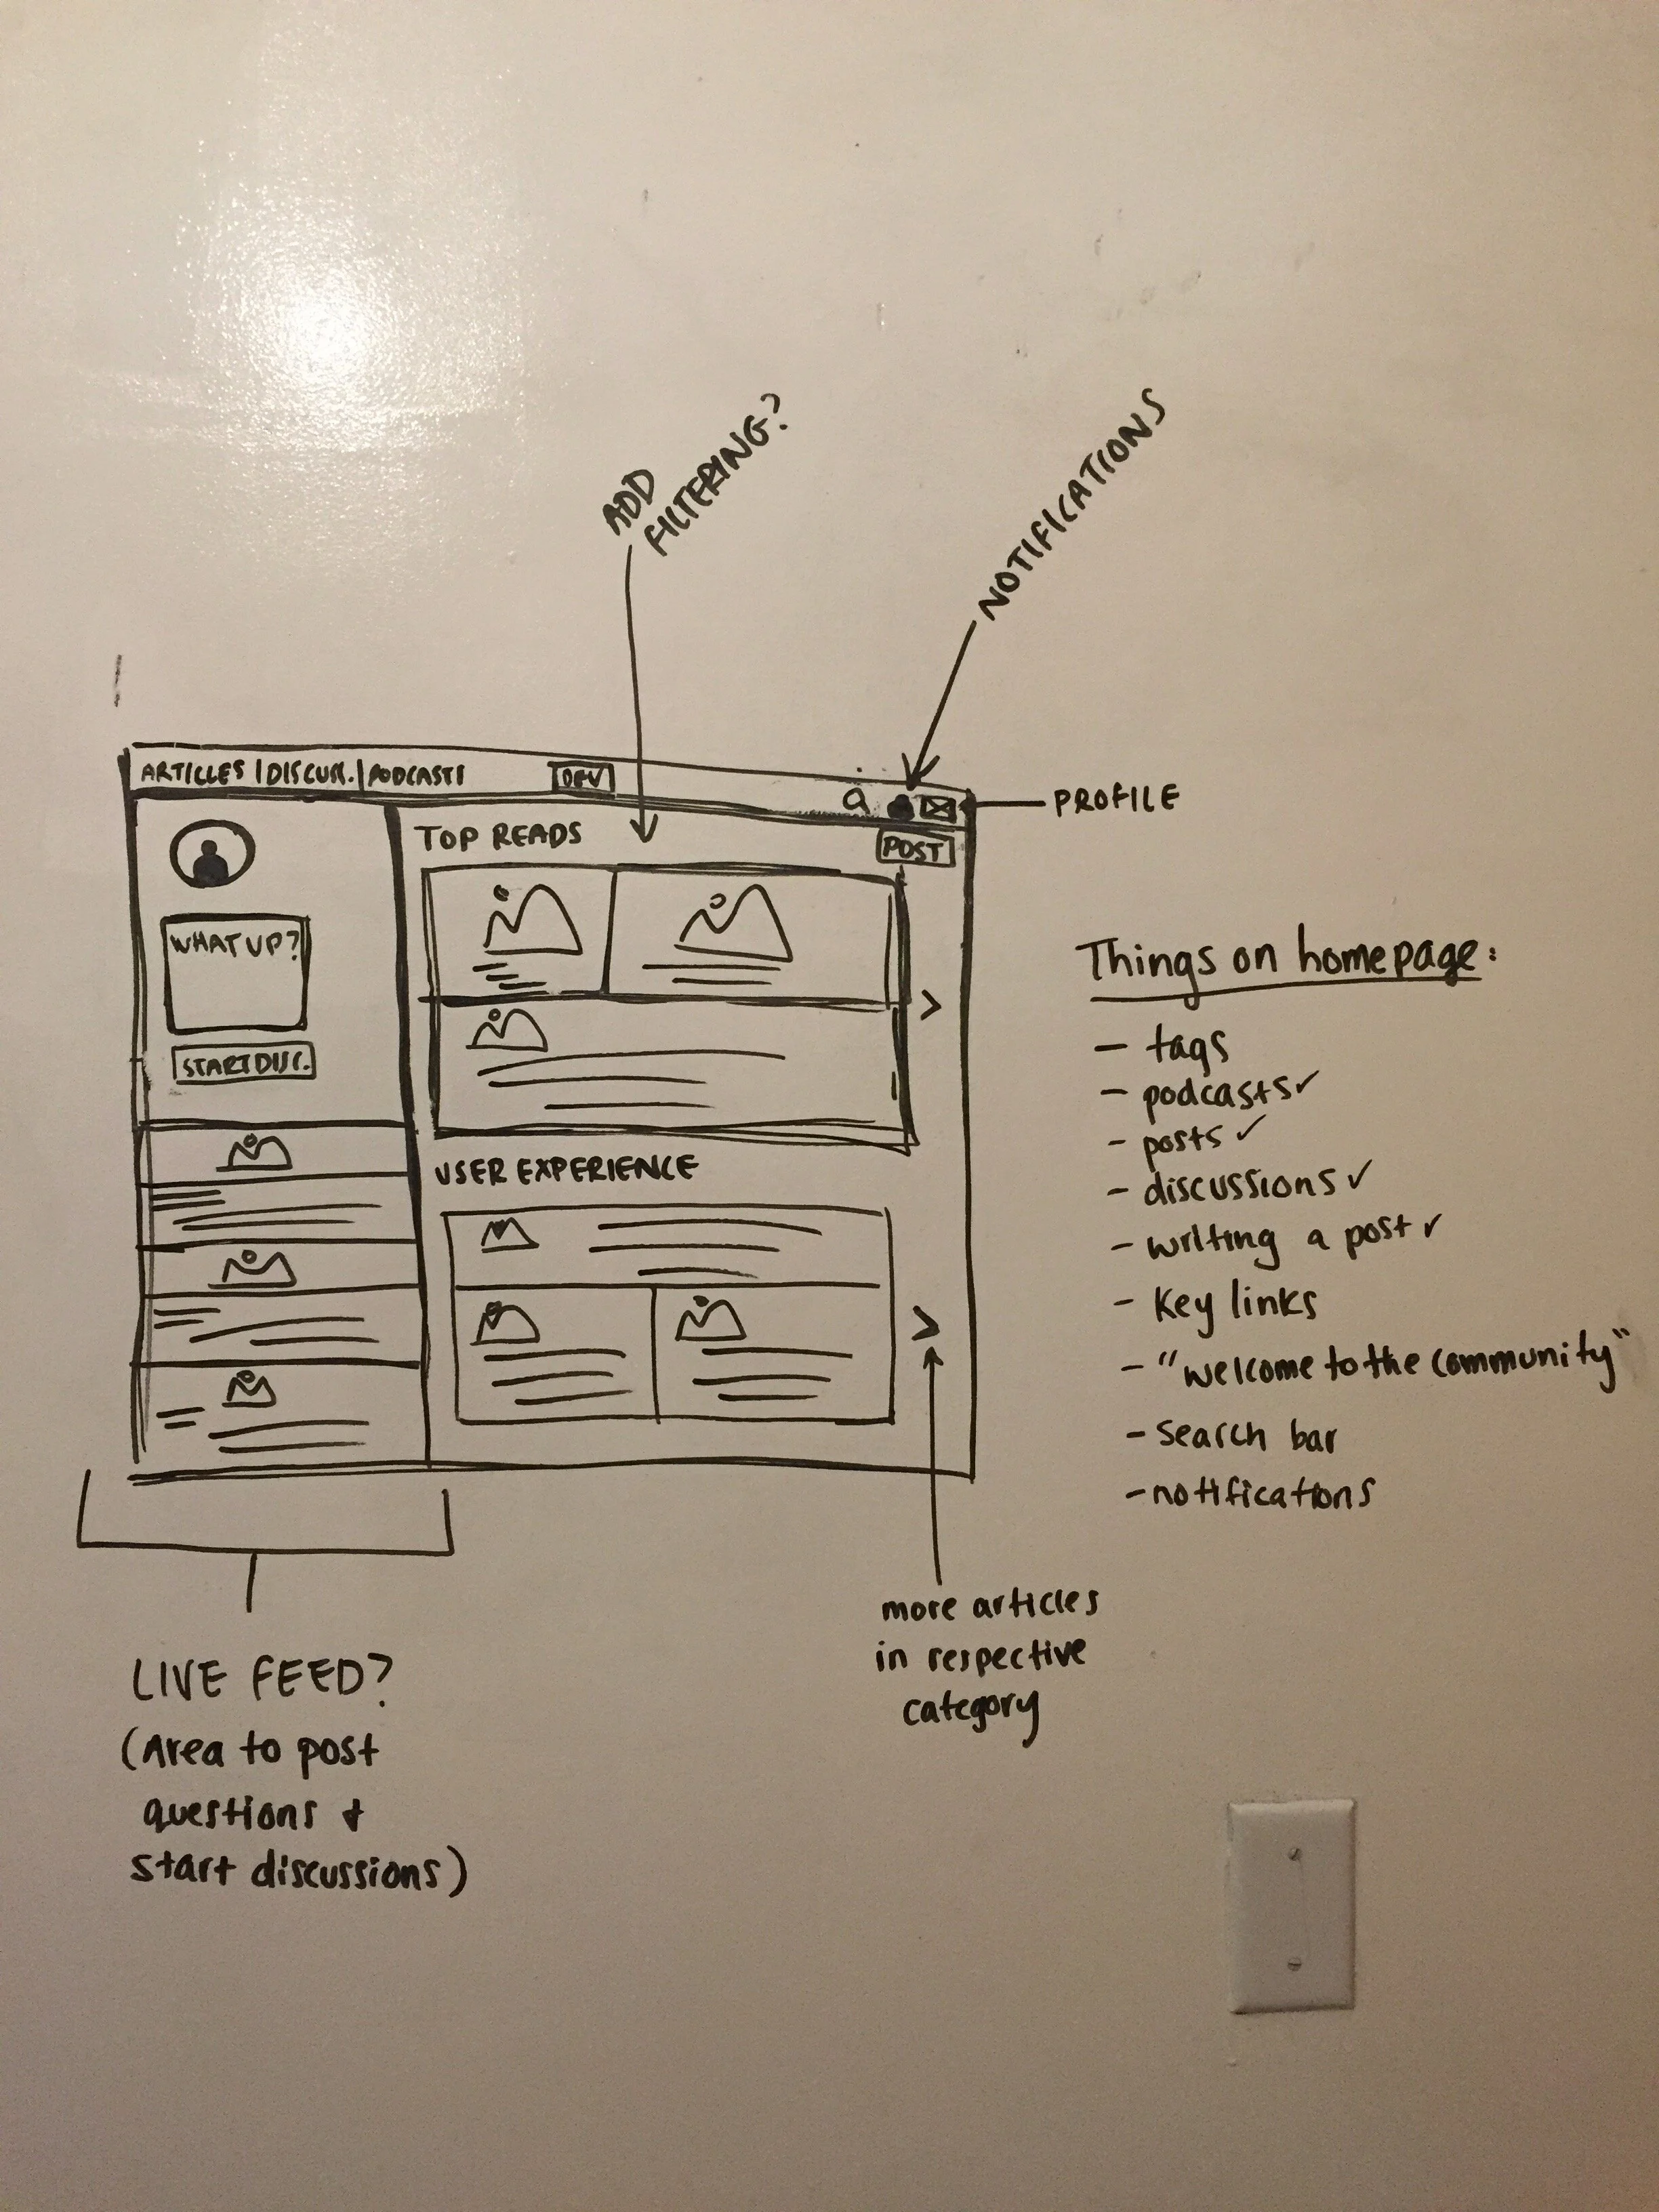 ADD
FILTERING?
NOTIFICATIONS
ARTICLES | DISCUSS. | PODCASTS
DEV
PROFILE
TOP READS
POST
WHAT UP?
START DISC.
USER EXPERIENCE
Things on homepage:
- tags
- podcasts ✓
- posts ✓
- discussions ✓
- writing a post ✓
- Key links
- "welcome to the community"
- Search bar
- notifications
more articles
in respective
category
LIVE FEED?
(Area to post
questions &
start discussions)